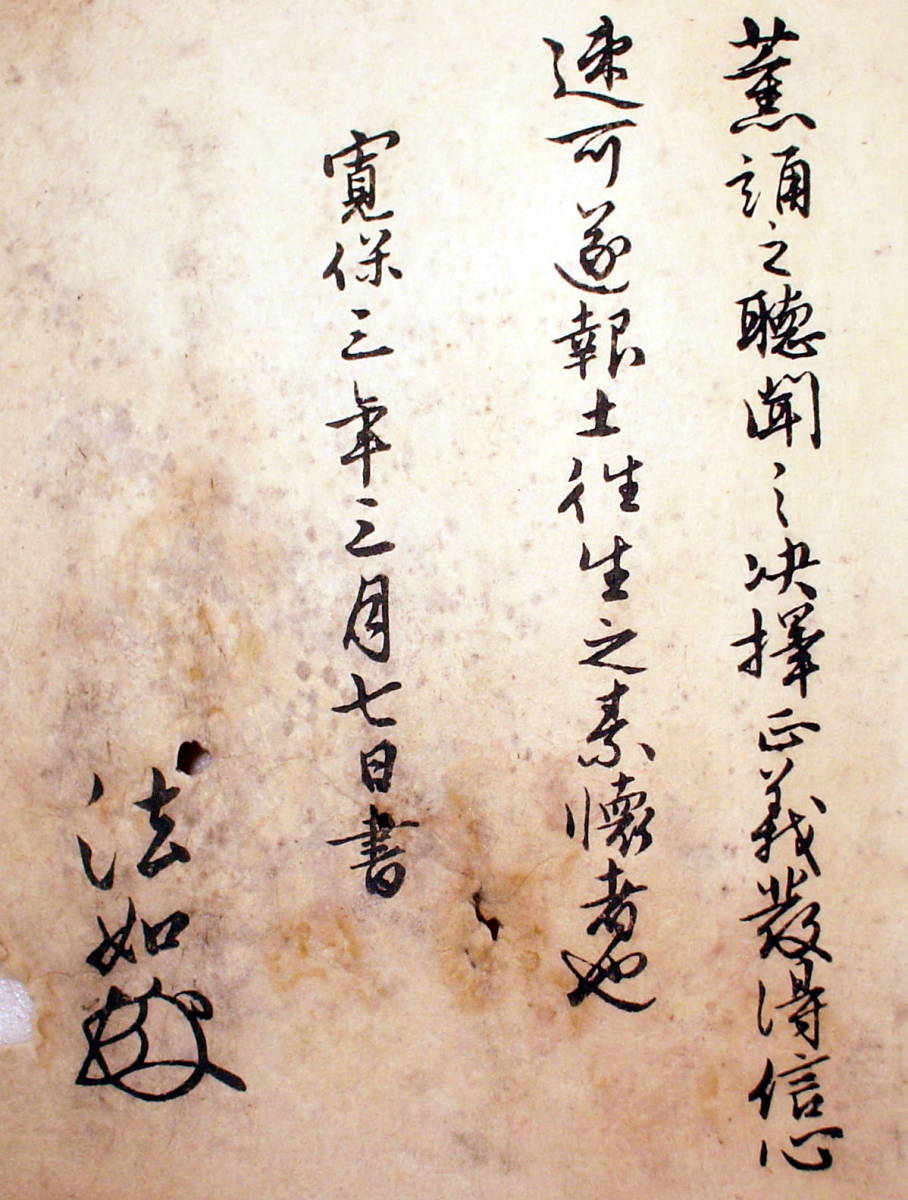 薫誦之聴聞之決擇正義發得信心
速可遂報土往生之素懐者也
寛保三年三月七日書
法如